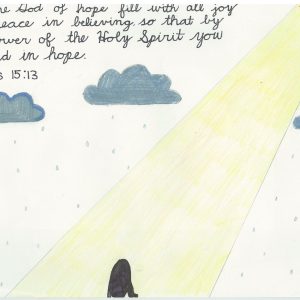 he God of hope fill with all joy
peace in believing, so that by
ower of the Holy Spirit you
d in hope.
s 15:13